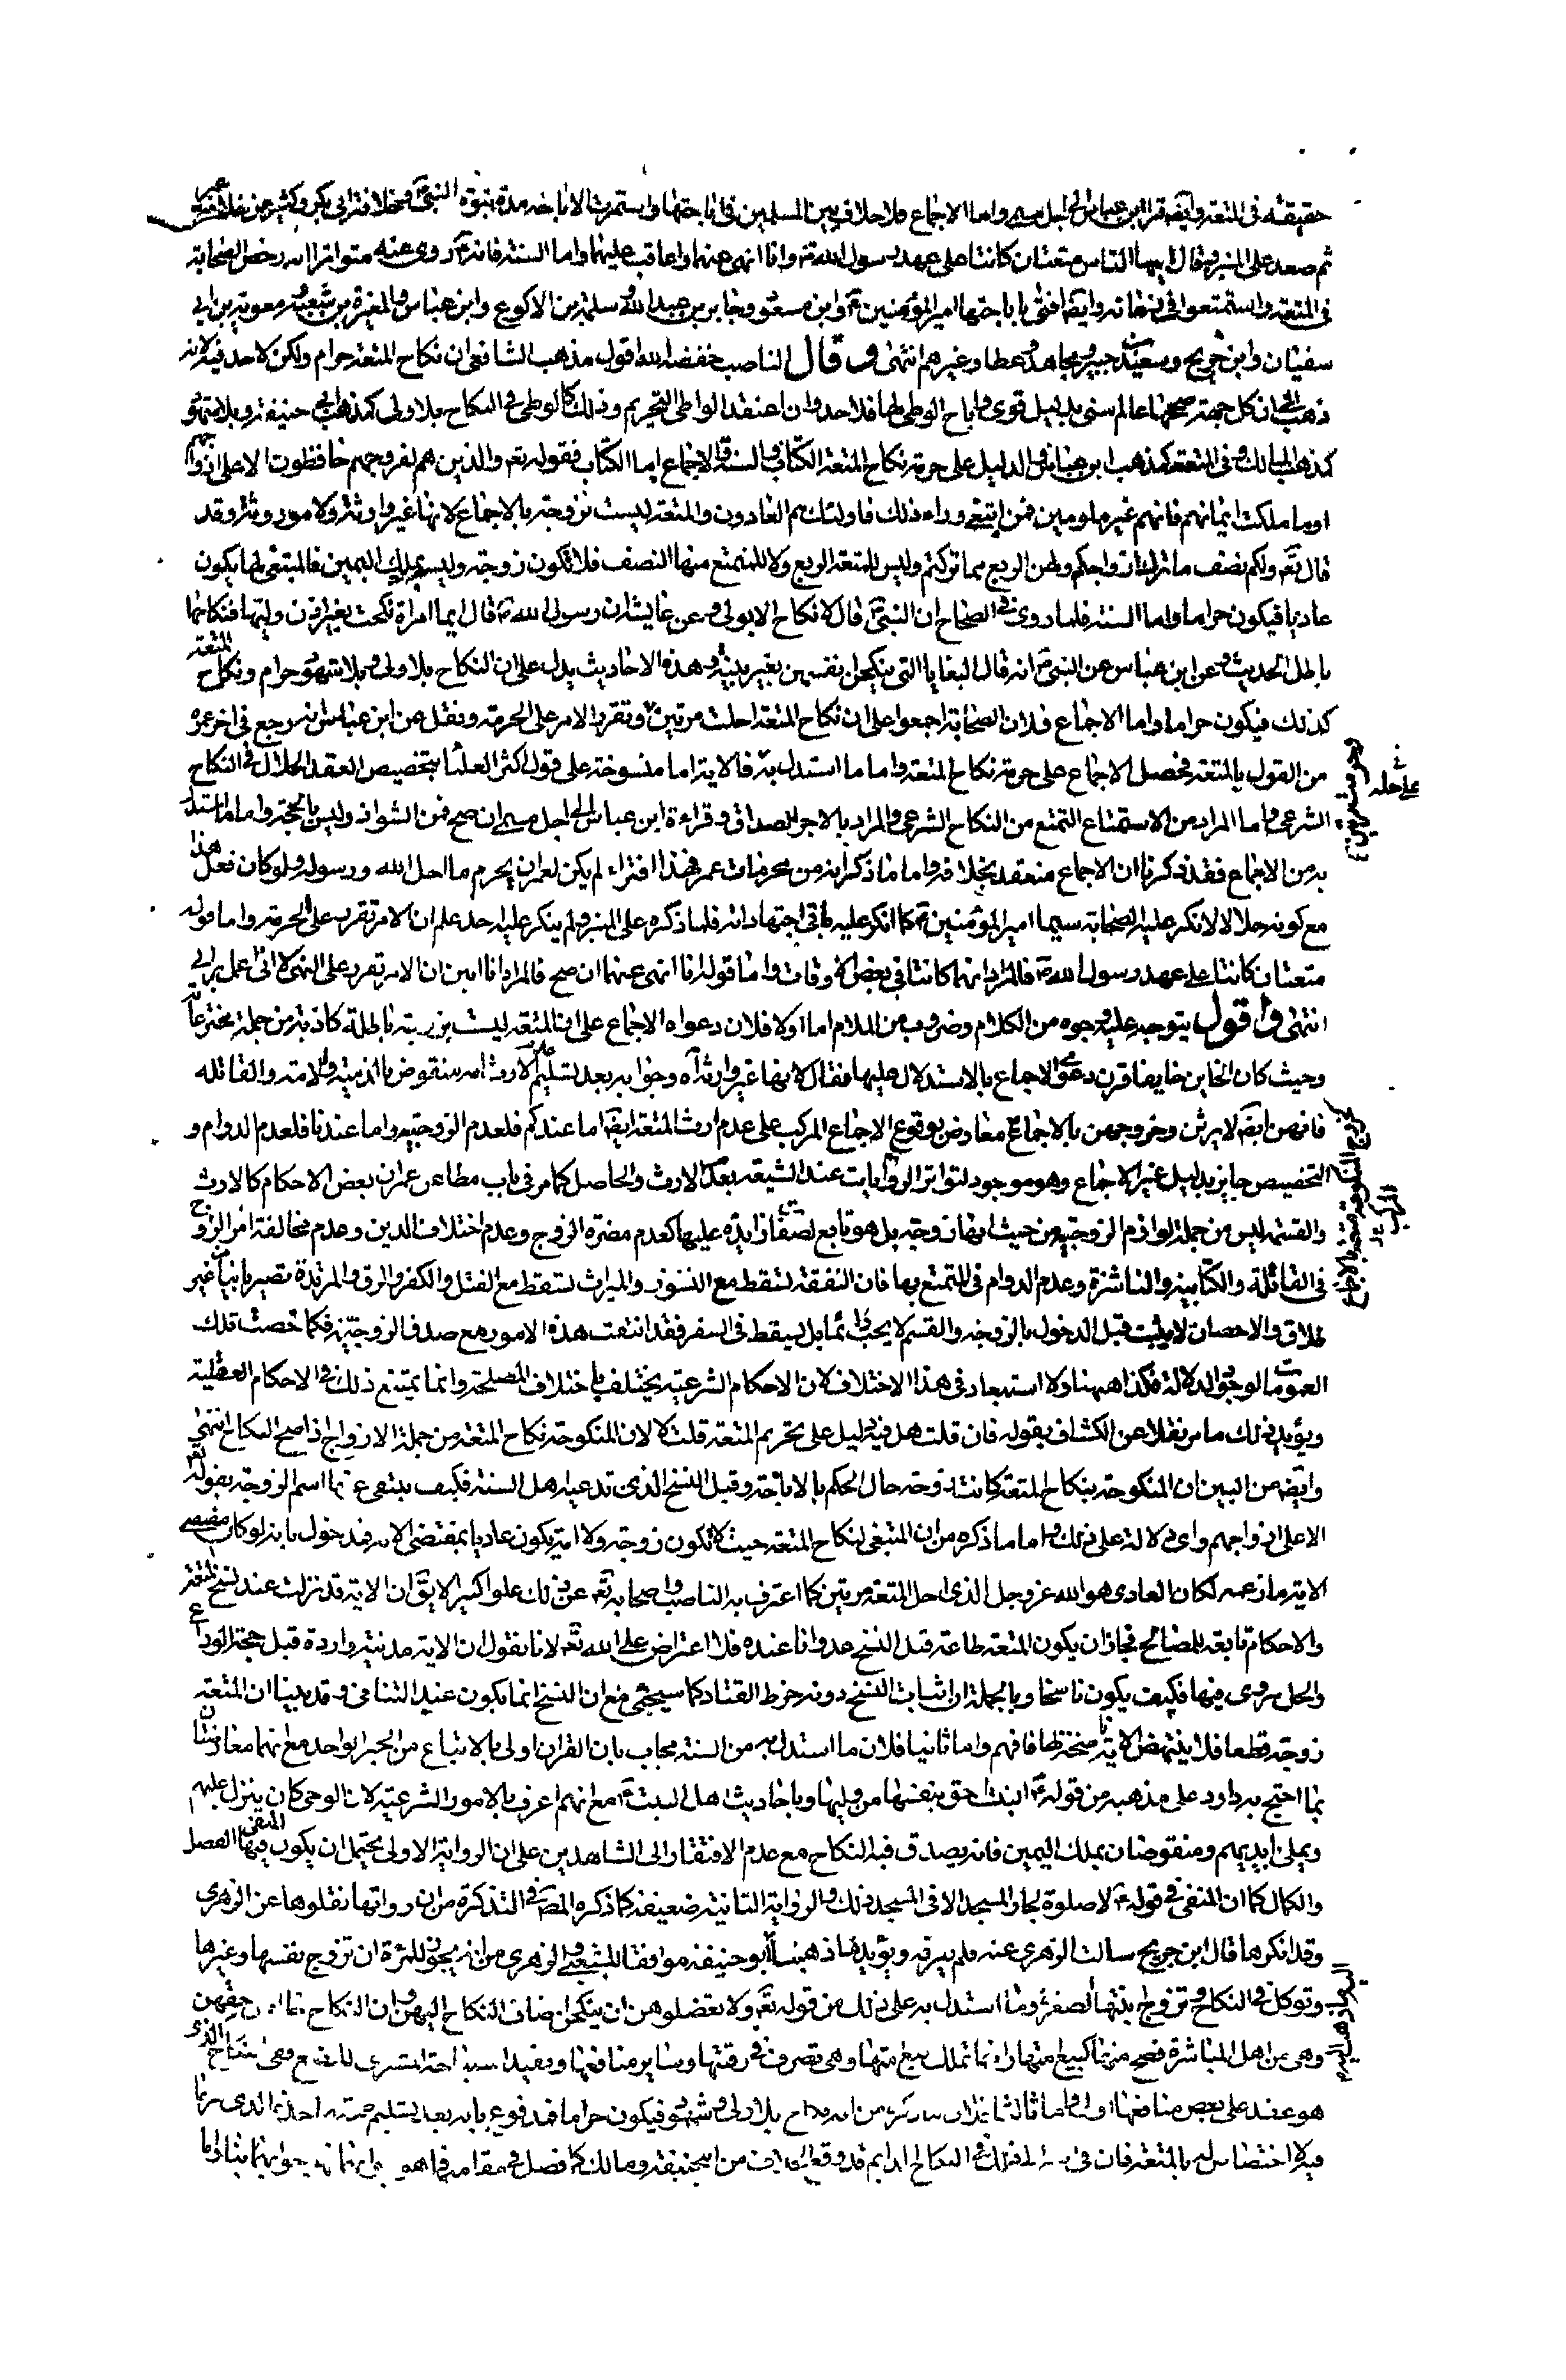 حقيقة في المتعة وايضا قرأ ابن عباس الى اجل مسمى واما الاجماع فلا خلاف بين المسلمين في اباحتها واستمرت الاباحة مدة نبوة النبي ص وخلافة ابي بكر وكثير من خلافة عمر
ثم صعد على المنبر وقال ايها الناس متعتان كانتا على عهد رسول الله ص وانا انهى عنهما واعاقب عليهما واما السنة فانه روى عنه متواترا انه رخص الصحابة
في المتعة واستمتعوا في زمانه وايضا افتى باباحتها امير المؤمنين ع وابن مسعود وجابر بن عبد الله وسلمة بن الاكوع وابن عباس والمغيرة بن شعبة ومعوية بن ابي
سفيان وابن جريج وسعيد بن جبير ومجاهد وعطا وغيرهم انتهى وقال الناصب خفضه الله اقول مذهب الشافعي ان نكاح المتعة حرام ولكن لا حد فيه لانه
ذهب الى ان كل جهة صححها عالم سني بدليل قوى واباح الوطى لها فلا حد وان اعتقد الواطى التحريم وذلك كالوطى في النكاح بلا ولى كمذهب ابي حنيفة وبلا شهود
كمذهب المالك وفي المتعة كمذهب ابن عباس والدليل على حرمة نكاح المتعة الكتاب والسنة والاجماع اما الكتاب فقوله تعه والذين هم لفروجهم حافظون الا على ازواجهم
او ما ملكت ايمانهم فانهم غير ملومين فمن ابتغى وراء ذلك فاولئك هم العادون والمتعة ليست بزوجة بالاجماع لانها غير وارثة ولا موروثة وقد
قال تعه ولكم نصف ما ترك ازواجكم ولهن الربع مما تركتم وليس للمتعة الربع ولا للمتمتع منها النصف فلا تكون زوجة وليست بملك اليمين فالمبتغى لها يكون
عاديا فيكون حراما واما السنة فلما روى في الصحاح ان النبي ص قال لا نكاح الا بولى وعن عايشة ان رسول الله ص قال ايما امراة نكحت بغير اذن وليها فنكاحها
باطل الحديث وعن ابن عباس عن النبي ص انه قال البغايا التي ينكحن انفسهن بغير بينة وهذه الاحاديث يدل على ان النكاح بلا ولى وبلا شهود حرام ونكاح المتعة
كذلك فيكون حراما واما الاجماع فلان الصحابة اجمعوا على ان نكاح المتعة احلت مرتين وتقرر الامر على الحرمة ونقل عن ابن عباس انه رجع في اخر عمره
من القول بالمتعة فحصل الاجماع على حرمة نكاح المتعة واما ما استدل به فالاية اما منسوخة على قول اكثر العلماء بتخصيص العقد الحلال في النكاح
الشرعي واما المراد من الاستمتاع التمتع من النكاح الشرعي والمراد بالاجر الصداق وقراءة ابن عباس الى اجل مسمى ان صح فمن الشواذ وليس بالحجة واما ما استدل
به من الاجماع فقد ذكرنا ان الاجماع منعقد بخلافه واما ما ذكر انه من محرمات عمر فهذا افتراء لم يكن لعمر ان يحرم ما احل الله ورسوله ولو كان فعل هذا
مع كونه حلالا لانكر عليه الصحابة سيما امير المؤمنين ع كما انكر عليه باقي اجتهاداته فلما ذكره على المنبر ولم ينكر عليه احد علم ان الامر تقرر على الحرمة واما قوله
متعتان كانتا على عهد رسول الله ص فالمراد انهما كانتا في بعض الاوقات واما قوله انا انهى عنهما ان صح فالمراد انا ابين ان الامر تقرر على النهى لا انى اعمل برايي
انتهى واقول يتوجه عليه وجوه من الكلام وضروب من الملام اما اولا فلان دعواه الاجماع على ان المتعة ليست بزوجة باطلة كاذبة من جملة مخترعاته
وحيث كان الخاين خايفا قرن دعوى الاجماع بالاستدلال عليها فقال لانها غير وارثة آه وجوابه بعد تسليم عدم الارث انه منقوض بالذمية والامة والقاتلة
فانهن ايضا لا يرثن وخروجهن بالاجماع معارض بوقوع الاجماع المركب على عدم ارث المتعة ايضا اما عندكم فلعدم الزوجية واما عندنا فلعدم الدوام و
التخصيص جايز بدليل غير الاجماع وهو موجود لتواتر الروايات عند الشيعة بعدم الارث والحاصل كما مر في باب مطاعن عمر ان بعض الاحكام كالارث
والقسمة ليس من جملة لوازم الزوجية من حيث انها زوجية بل هو تابع لصفات زايدة عليها كعدم مضرة الزوج وعدم اختلاف الدين وعدم مخالفة امر الزوج
في القاتلة والكتابية والناشزة وعدم الدوام في المتمتع بها فان النفقة تسقط مع النشوز والميراث تسقط مع القتل والكفر والرق والمرتدة تصير باينا بغير
طلاق والاحصان لا يثبت قبل الدخول بالزوجة والقسم لا يجب دائما بل يسقط في السفر فقد انتفت هذه الامور مع صدق الزوجية فكما خصت تلك
العمومات لوجود الدلالة فكذا ههنا ولا استبعاد في هذا الاختلاف لان الاحكام الشرعية يختلف باختلاف المصلحة وانما يمتنع ذلك في الاحكام العقلية
ويؤيد ذلك ما مر نقلا عن الكشاف بقوله فان قلت هل فيه دليل على تحريم المتعة قلت لا لان المنكوحة نكاح المتعة من جملة الازواج اذا صح النكاح انتهى
وايضا من البين ان المنكوحة بنكاح المتعة كانت زوجة حال الحكم بالاباحة وقبل النسخ الذى تدعيه اهل السنة فكيف ينتفى عنها اسم الزوجة بقوله تعه
الا على ازواجهم واى دلالة على ذلك واما ما ذكره من ان المبتغى لنكاح المتعة حيث لا تكون زوجة ولا امة يكون عاديا بمقتضى الاية فمدخول بانه لو كان مقتضى
الاية ما زعمه لكان العادى هو الله عز وجل الذى احل المتعة مرتين كما اعترف به الناصب واصحابه تعه عن ذلك علوا كبيرا لا يق ان الاية قد نزلت عند نسخ المتعة
والاحكام تابعة للمصالح فجاز ان يكون المتعة طاعة قبل النسخ عدوانا عنده فلا اعتراض على الله تعه لانا نقول ان الاية مدنية واردة قبل حجة الوداع
والحل مروى فيها فكيف يكون ناسخا وبالجملة اثبات النسخ دونه خرط القتاد كما سيجئ مع ان النسخ انما يكون عند التنافى وقد بينا ان المتعة
زوجة قطعا فلا ينتهض الاية ناسخة لها فافهم واما ثانيا فلان ما استدل به من السنة مجاب بان القران اولى بالاتباع من الخبر الواحد مع انهما معارضتان
بما احتج به داود على مذهبه من قوله ص البنت احق بنفسها من وليها وباحاديث اهل البيت ع مع انهم اعرف بالامور الشرعية لان الوحى كان ينزل عليهم
ويملى ابديهم ومنقوضان بملك اليمين فانه يصدق فيه النكاح مع عدم الافتقار الى الشاهدين على ان الرواية الاولى يحتمل ان يكون المنفى فيها الفضل
والكمال كما ان المنفى في قوله ص لا صلوة لجار المسجد الا في المسجد ذلك والرواية الثانية ضعيفة كما ذكره المص في التذكرة من ان رواتها نقلوها عن الزهرى
وقد انكرها قال ابن جريج سالت الزهرى عنه فلم يعرفه ويؤيدها ذهب ابو حنيفة موافقا للشعبي والزهرى من انه يجوز للمرأة ان تزوج نفسها وغيرها
وتوكل في النكاح وتزوج بنتها الصغرى وما استدل به على ذلك من قوله تعه ولا تعضلوهن ان ينكحن اضاف النكاح اليهن وان النكاح حقهن
وهى من اهل المباشرة فصح منها كبيع متها ولانها تملك بيع متها وهى تصرف في رقبتها وساير منافعها
هو عقد على بعض منافعها واما ثالثا فلان بلا ولى وشهود فيكون حراما فمدفوع بانه بعد تسليم
لا اختصاص له بالمتعة فان في النكاح الدايم قد وقع من ابي حنيفة ومالك كما فصل في مقامه فما هو جوابهما